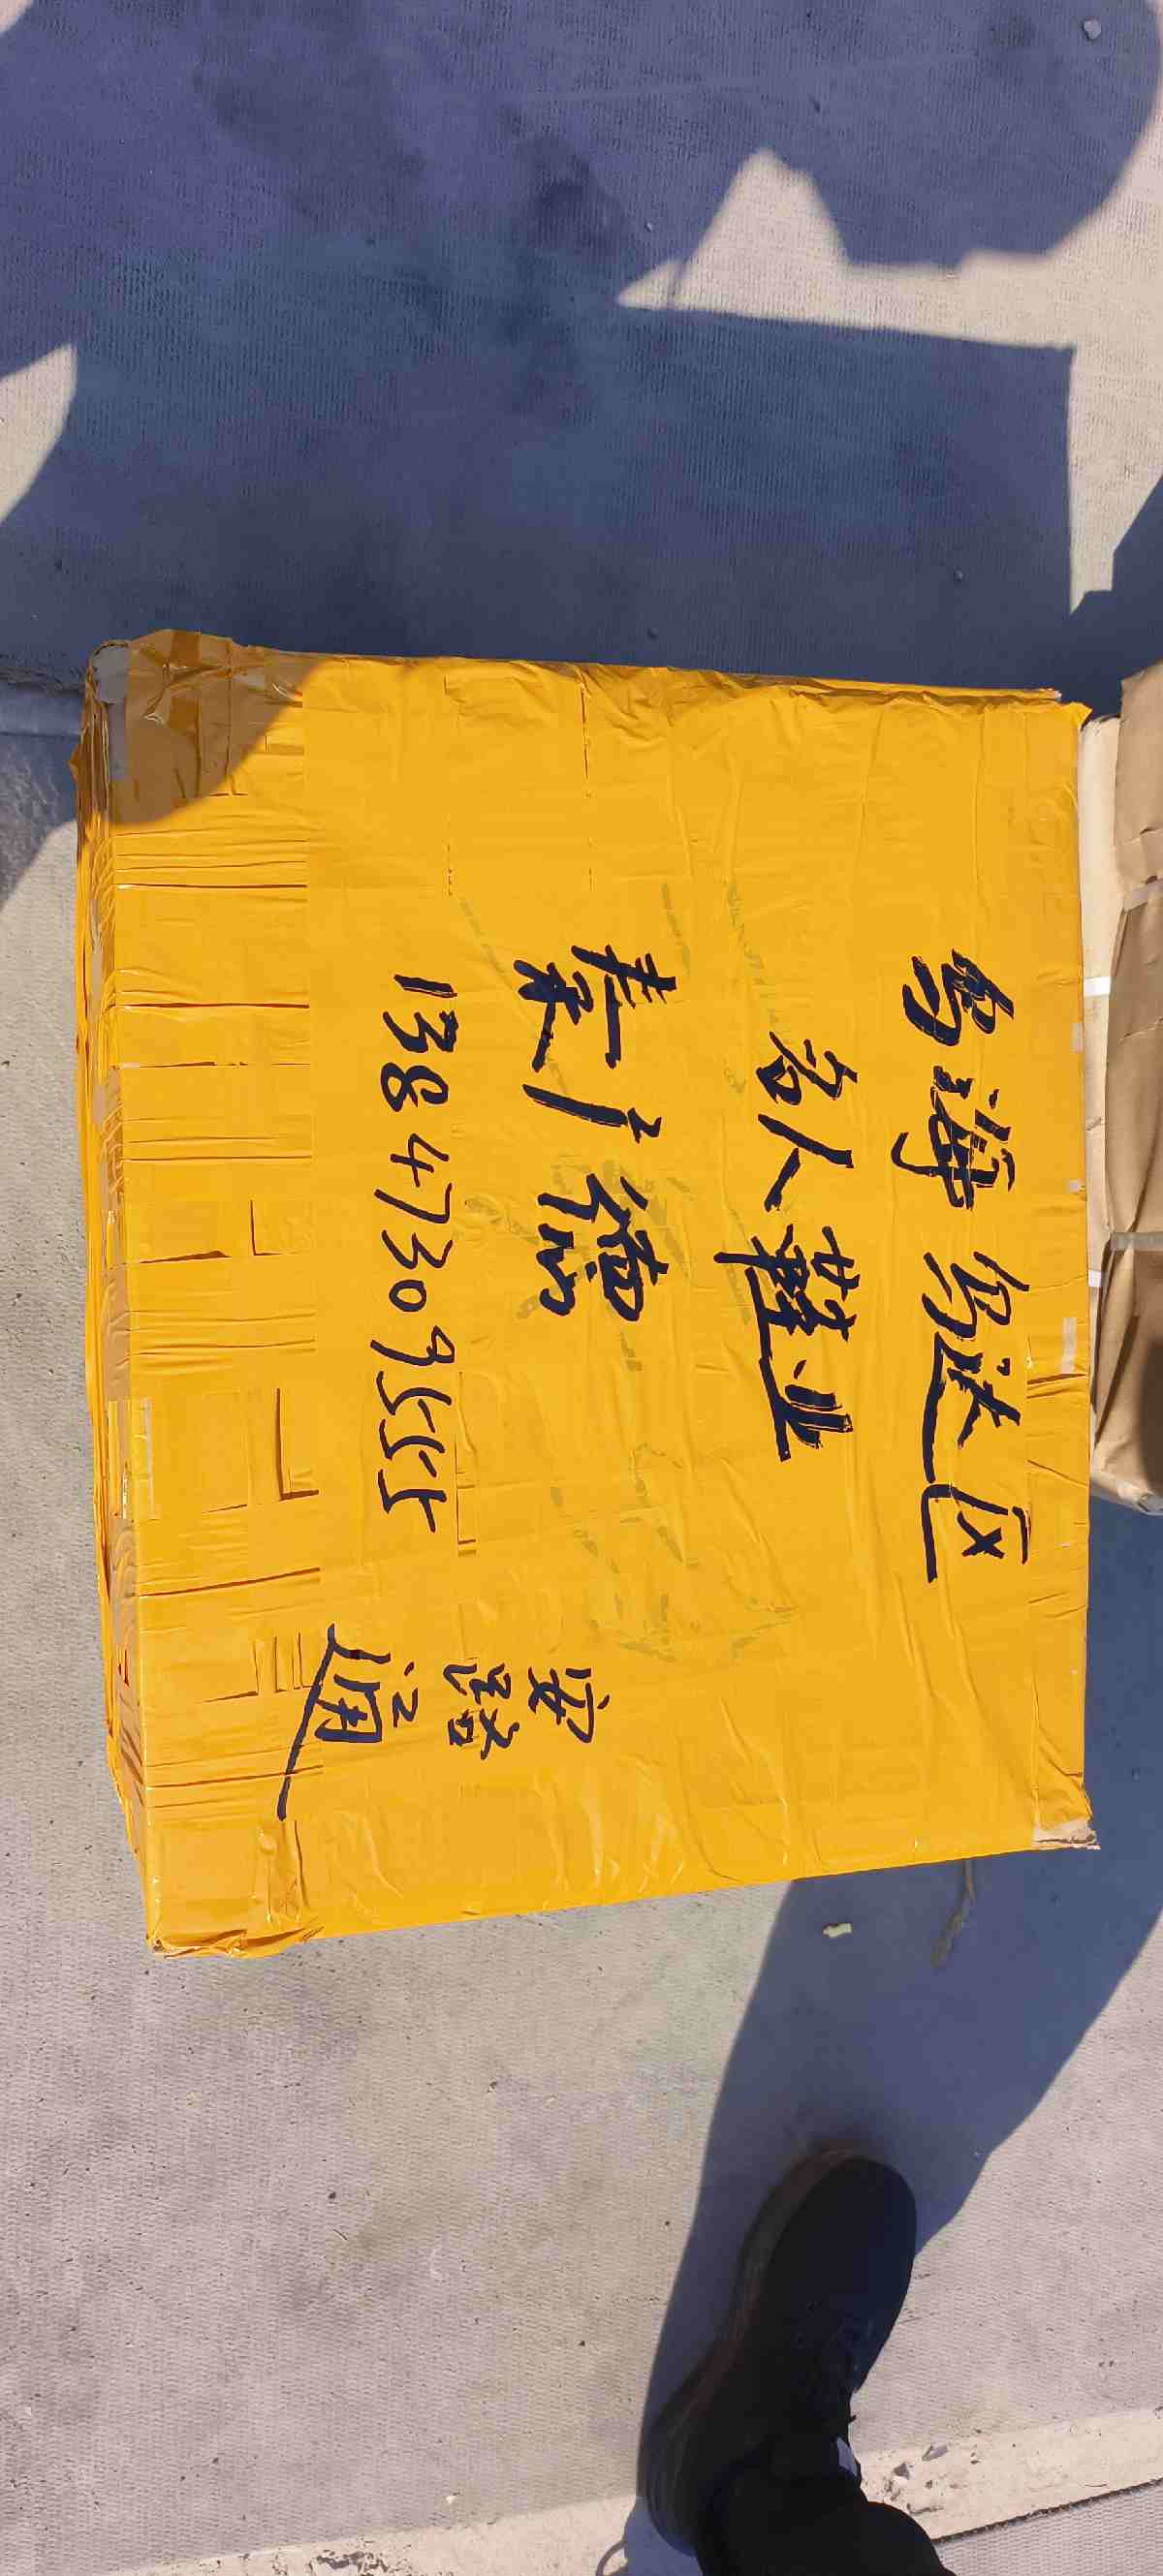 乌海 乌达区
名人鞋业
秦广德
13847309555
安路
汇通